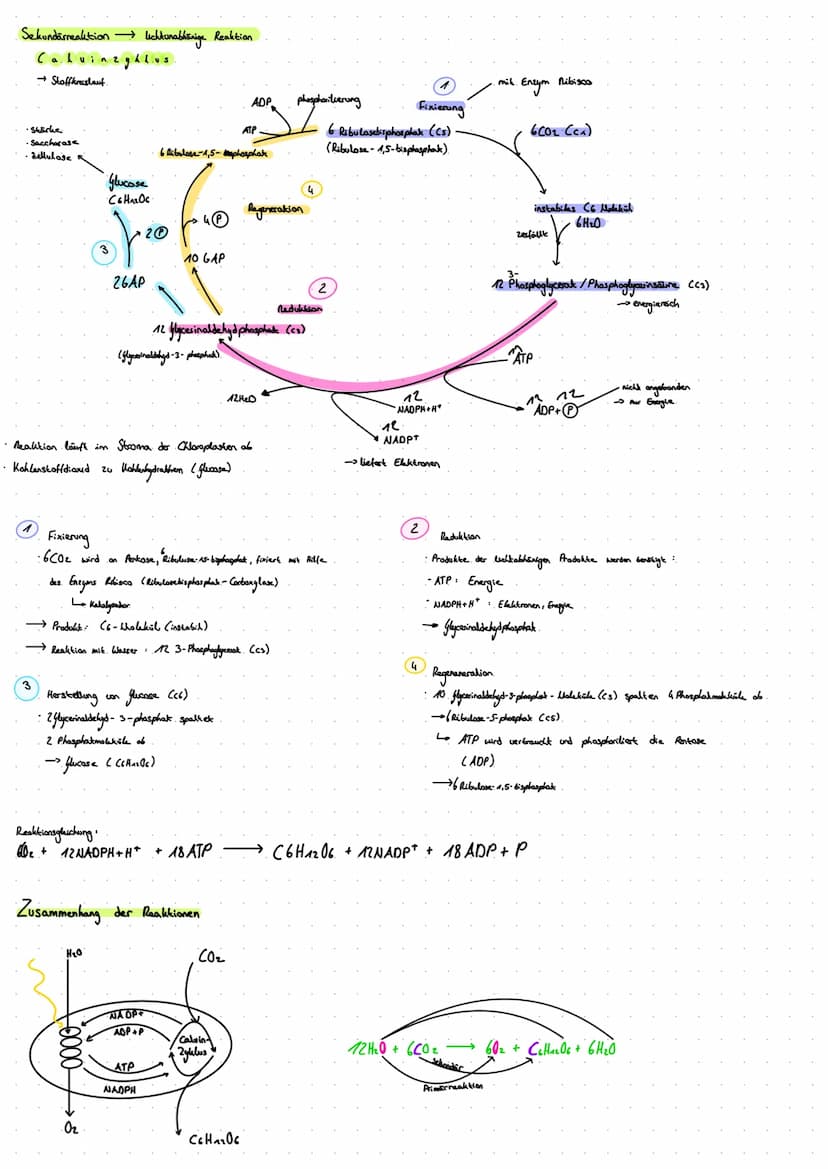 Sekundärreaktion → lichtunabhängige Reaktion
Calvinzyklus
→ Stoffkreislauf
1
mit Enzym Ribisco
Fixierung
ADP
phosphorilierung
ATP
6 Ribulosebisphosphat (C5)
(Ribulose-1,5-bisphosphat)
6CO2 (C1)
· Stärke
· Saccharose
· Zellulose
6 Ribulose-1,5-bisphosphat
Glucose
C6H12O6
4
Regeneration
instabiles C6 Molekül
zerfällt
6H2O
4 P
2 P
3
10 GAP
2GAP
2
Reduktion
12 3-Phosphoglycerat / Phosphoglycerinsäure (C3)
→ energiereich
12 Glycerinaldehydphosphat (C3)
(Glycerinaldehyd-3-phosphat)
12 ATP
12H2O
12 NADPH+H+
12 NADP+
→ liefert Elektronen
12 ADP + 12 P
nicht angebunden
→ nur Energie
· Reaktion läuft im Stroma der Chloroplasten ab
· Kohlenstoffdioxid zu Kohlenhydrathen (Glucose)
1 Fixierung
· 6CO2 wird an Pentose, 6 Ribulose-1,5-bisphosphat, fixiert mit Hilfe
des Enzyms Rbisco (Ribulosebisphosphat-Carboxylase)
↳ Katalysator
→ Produkt: C6-Molekül (instabil)
→ Reaktion mit Wasser: 12 3-Phosphoglycerat (C3)
2 Reduktion
· Produkte der lichtabhängigen Produkte werden benötigt:
- ATP: Energie
- NADPH+H+: Elektronen, Energie
→ Glycerinaldehydphosphat
3 Herstellung von Glucose (C6)
· 2 Glycerinaldehyd-3-phosphat spaltet
2 Phosphatmoleküle ab
→ Glucose (C6H12O6)
4 Regeneneration
· 10 Glycerinaldehyd-3-phosphat-Moleküle (C3) spalten 4 Phosphatmoleküle ab
→ 6 Ribulose-5-phosphat (C5)
↳ ATP wird verbraucht und phosphoriliert die Pentose
(ADP)
→ 6 Ribulose-1,5-bisphosphat
Reaktionsgleichung:
6CO2 + 12NADPH+H+ + 18ATP → C6H12O6 + 12NADP+ + 18 ADP + P
Zusammenhang der Reaktionen
H2O
CO2
NADP+
ADP+P
ATP
NADPH
Calvin-
Zyklus
O2
C6H12O6
12H2O + 6CO2 → 6O2 + C6H12O6 + 6H2O
Sekundär
Primärreaktion